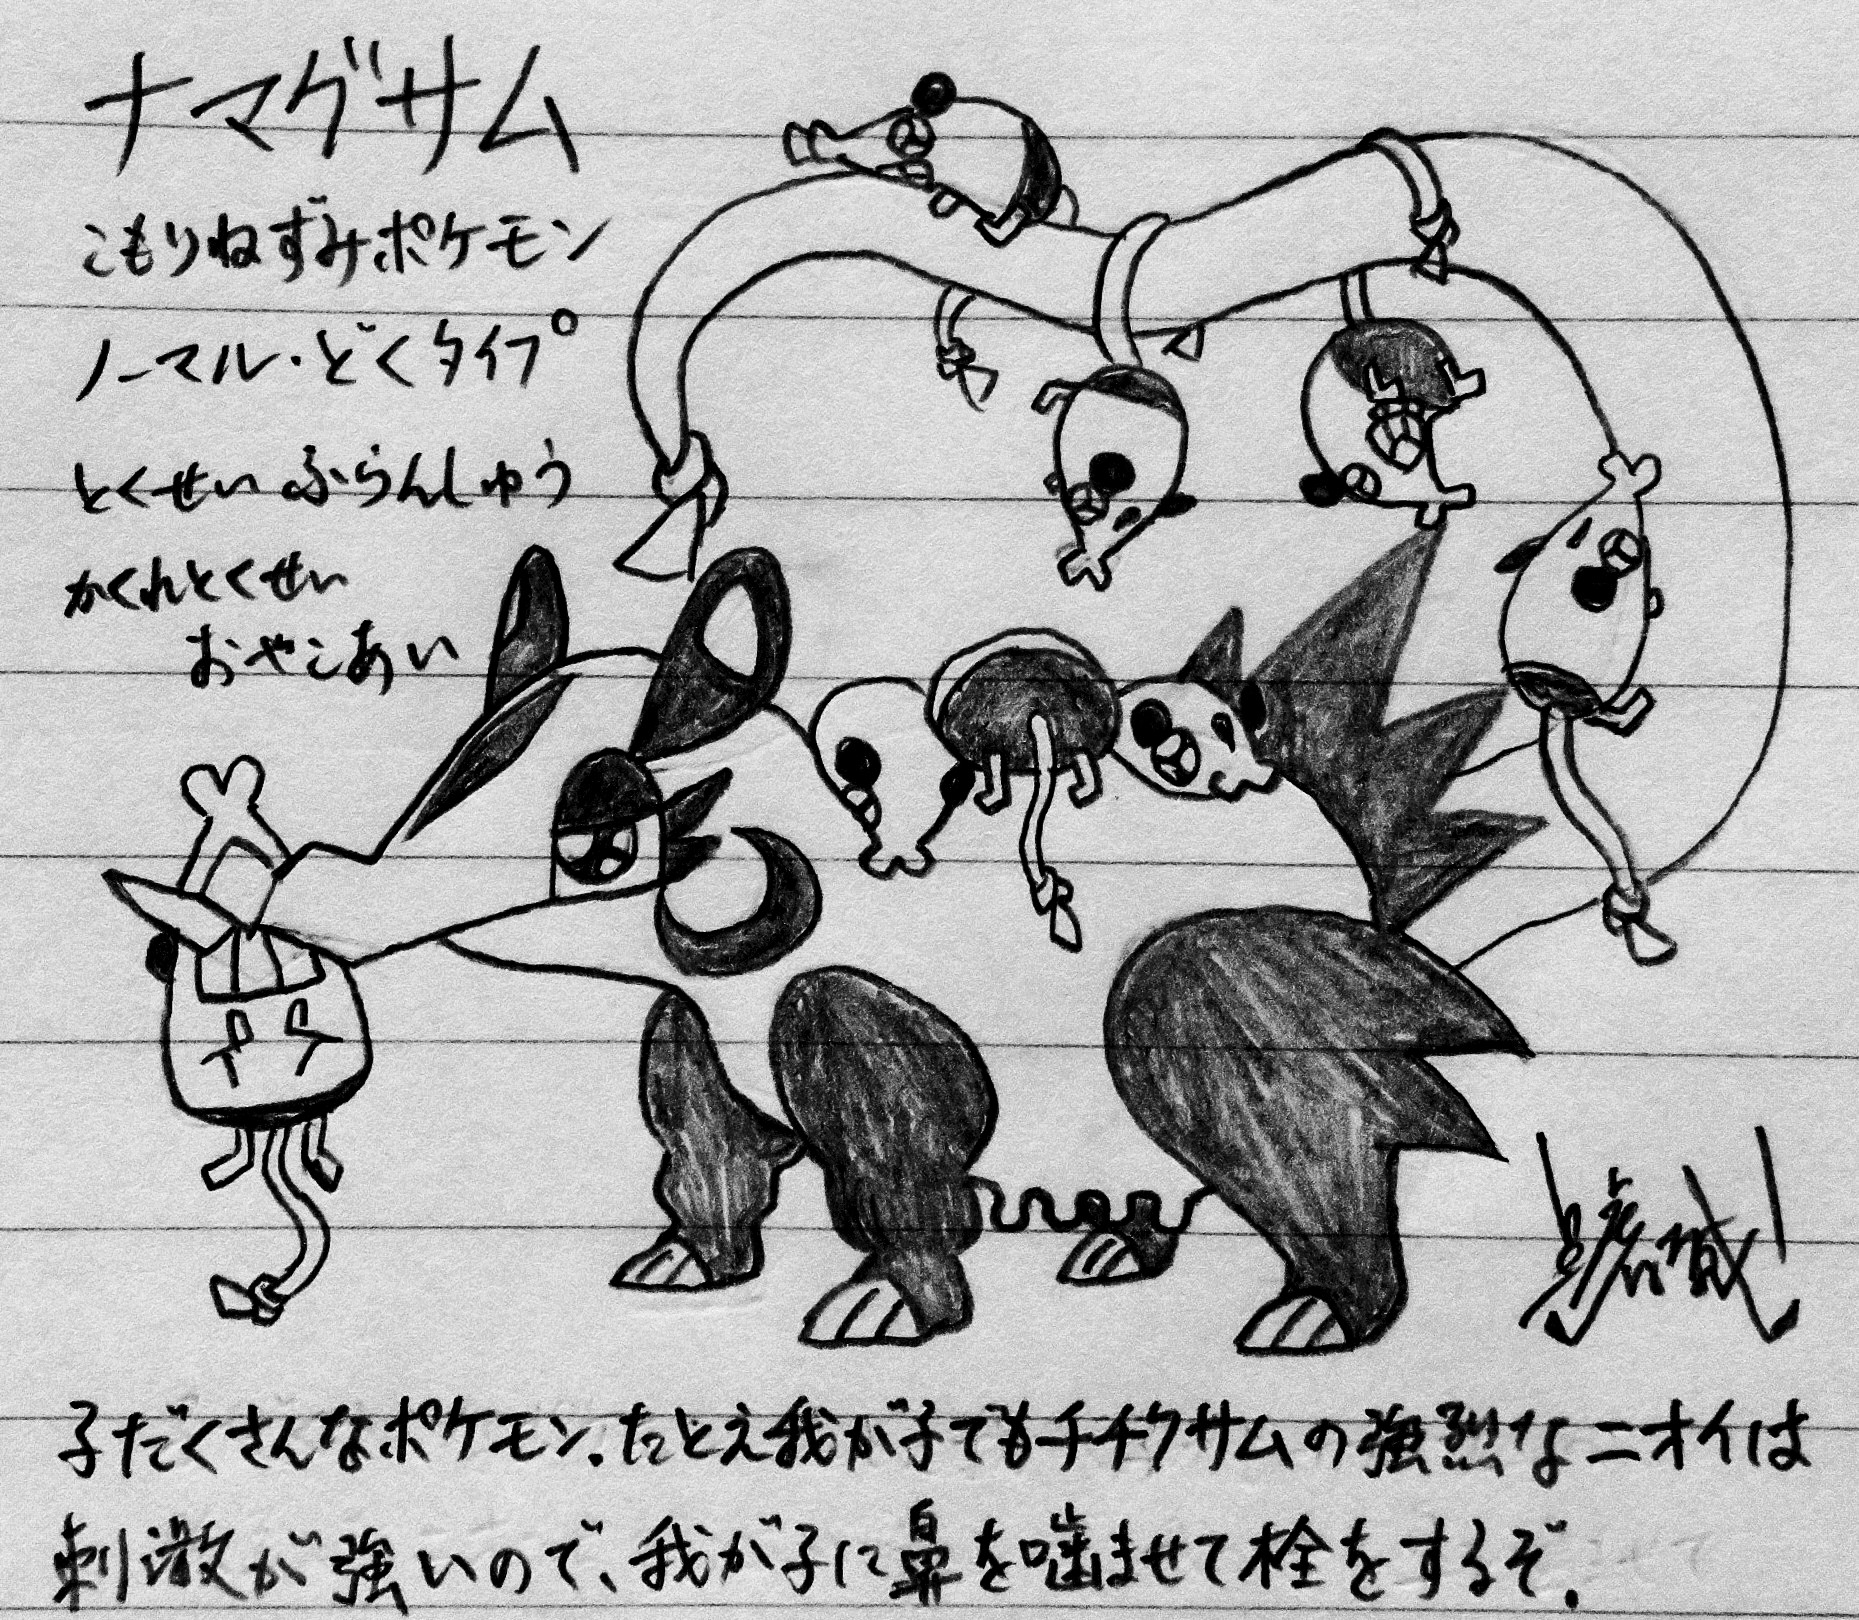 ナマグサム
こもりねずみポケモン
ノーマル・どくタイプ
とくせい ふらんしゅう
かくれとくせい
おやこあい
子だくさんなポケモン.たとえ我が子でもチチクサムの強烈なニオイは
刺激が強いので、我が子に鼻を噛ませて栓をするぞ.